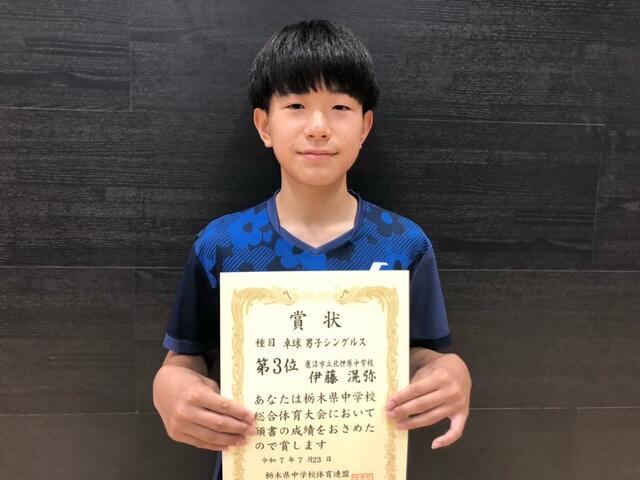 賞状
種目 卓球 男子シングルス
第3位 鹿沼市立北押原中学校
伊藤 滉弥
あなたは栃木県中学校
総合体育大会において
頭書の成績をおさめた
ので賞します
令和7年7月23日
栃木県中学校体育連盟